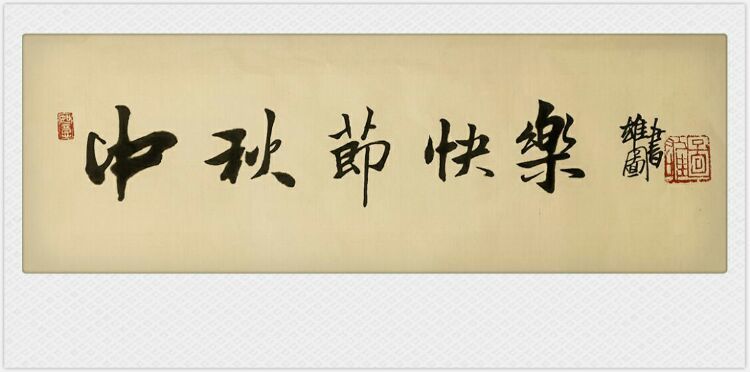 中秋節快樂
雄圖書